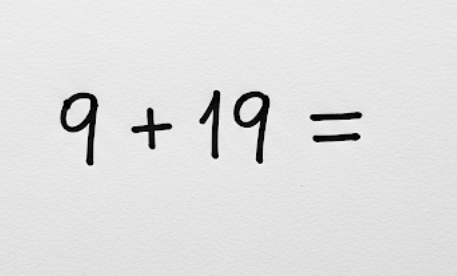 9 + 19 =